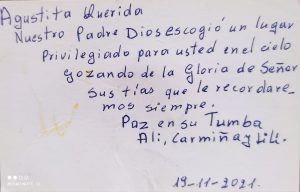 Agustita Querida
Nuestro Padre Dios escogió un lugar
Privilegiado para usted en el cielo
gozando de la Gloria de Señor
sus tías que le recordare
mos siempre.
Paz en su Tumba
Ali, Carmiña y Lili.
19-11-2021.